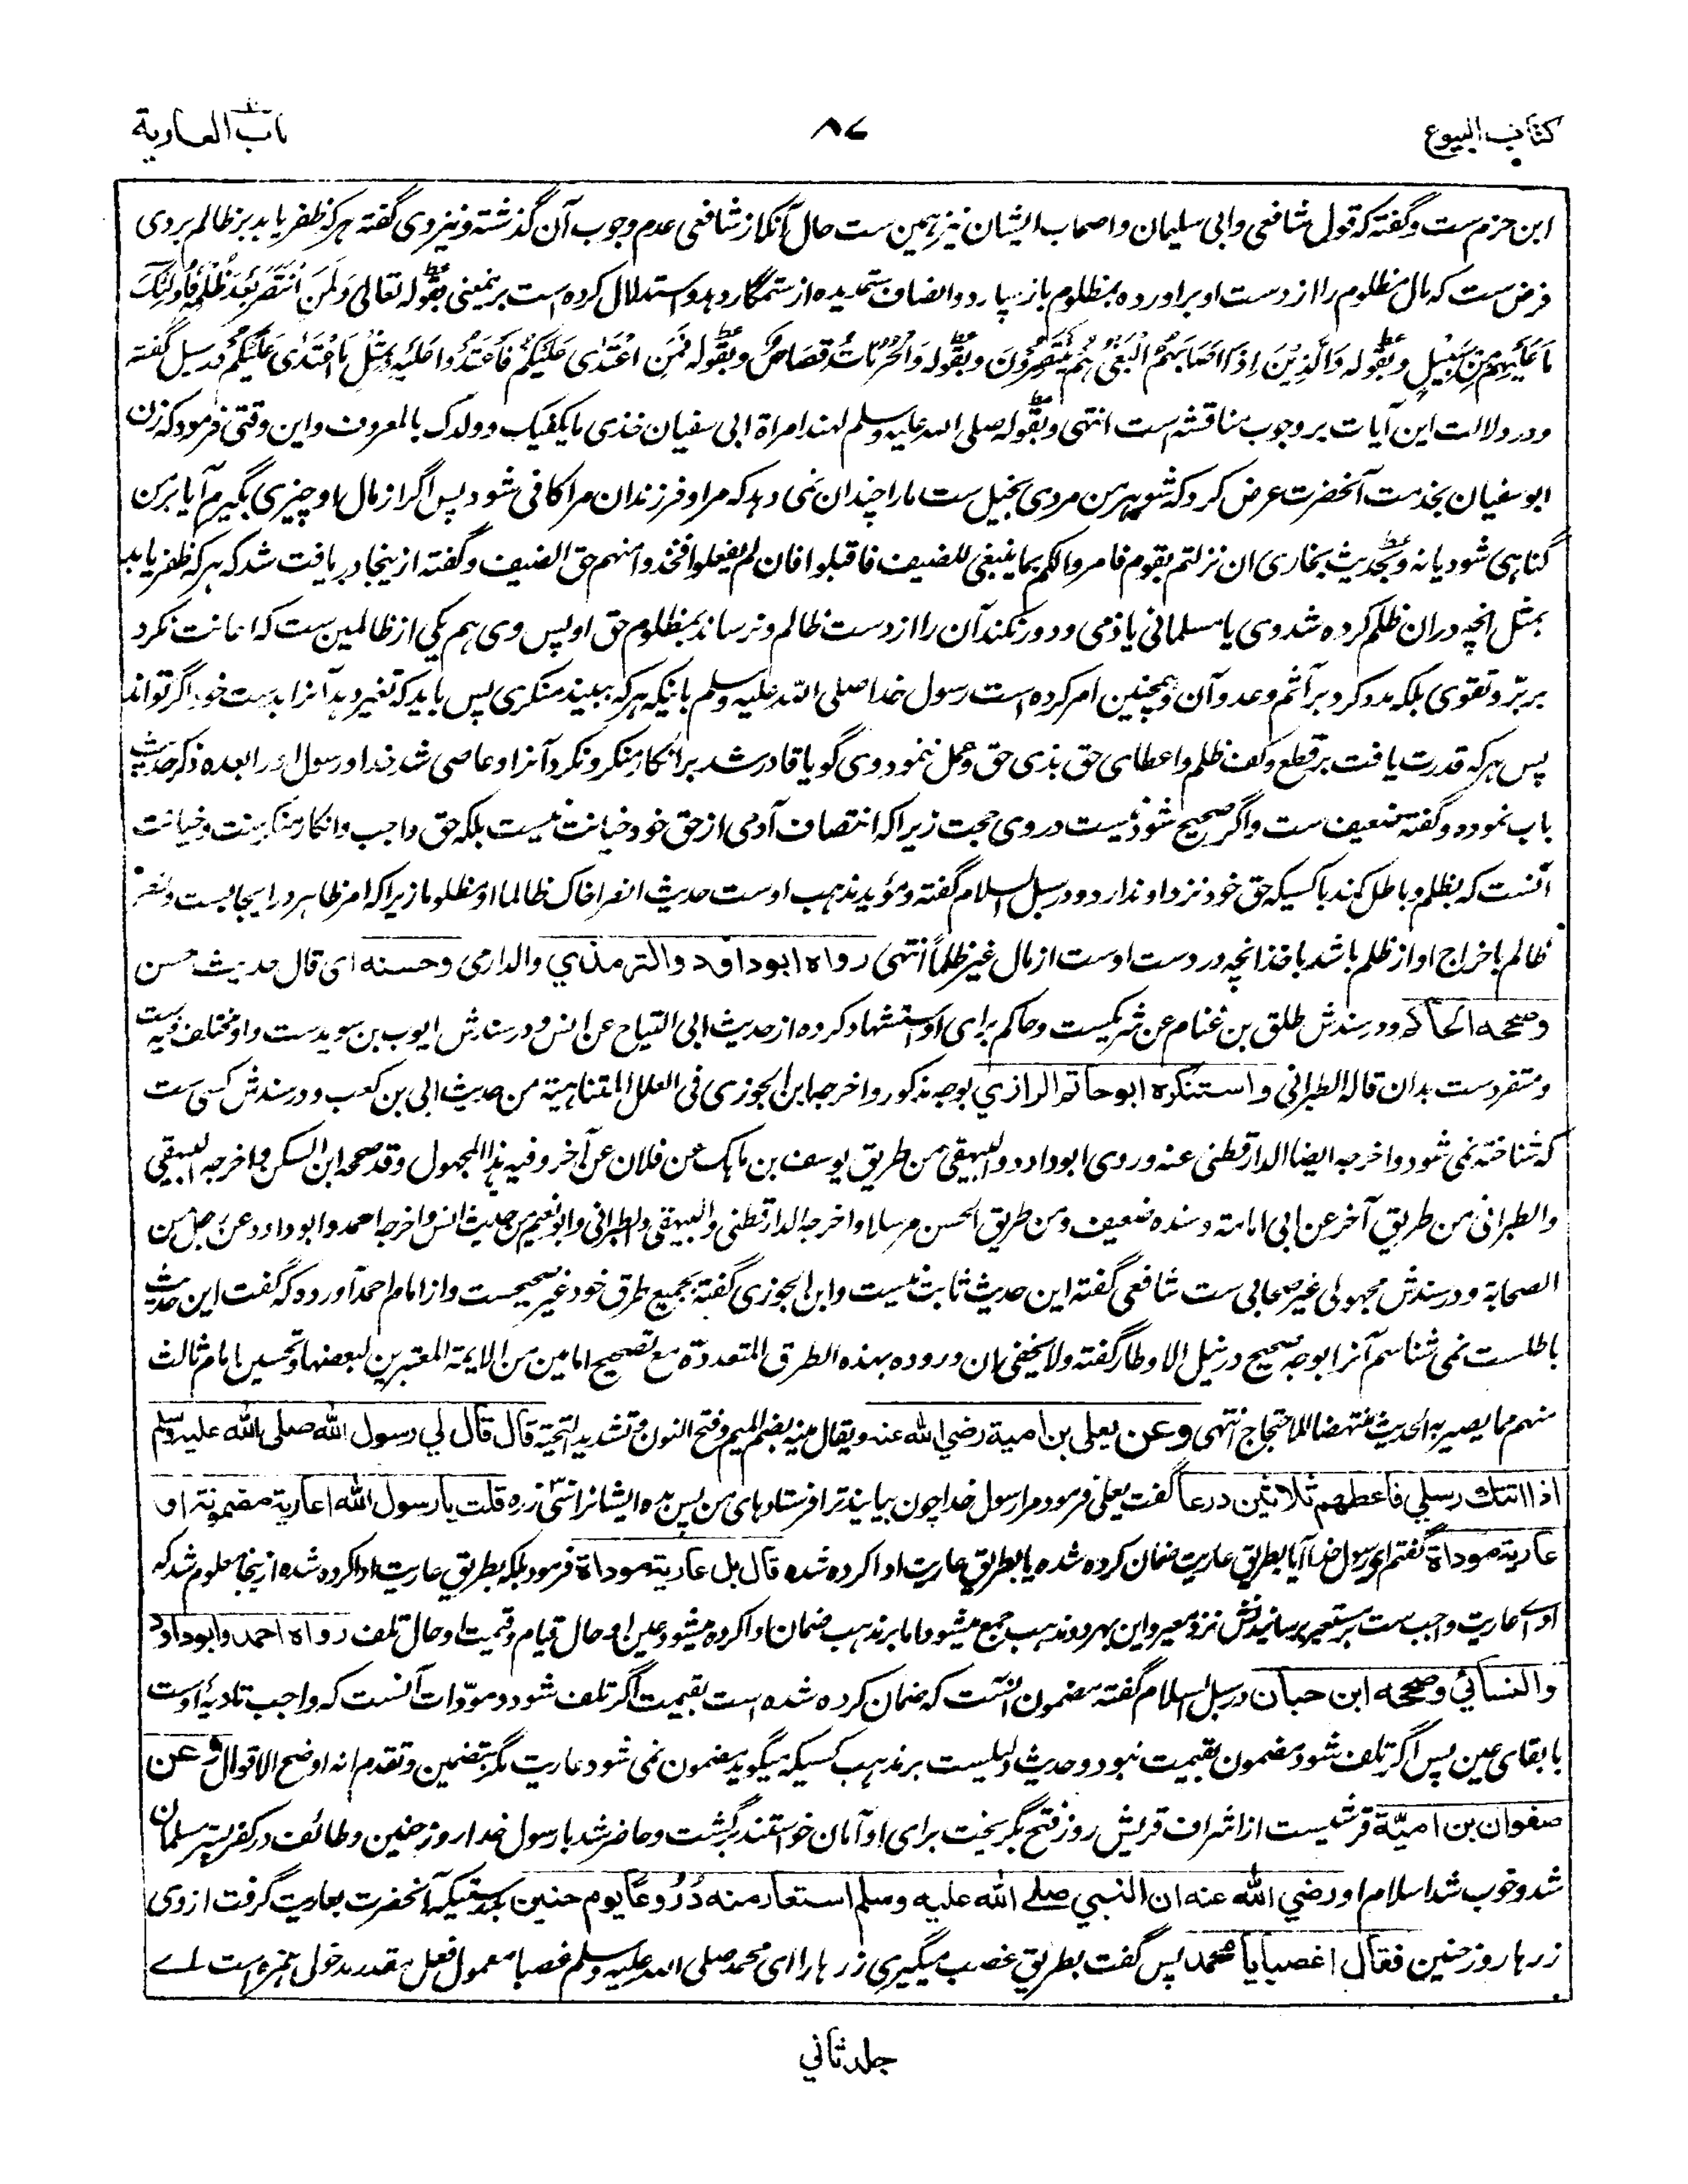 كتاب البيوع
٨٧
باب العارية
ابن حزم ست وگفته که قول شافعی وابی سلیمان واصحاب ایشان نیز همین ست حال آنکه از شافعی عدم وجوب آن گذشته ونیز وی گفته هر که ظفر یابد بر ظالم بر وی
فرض ست که مال مظلوم را از دست او برآورده بمظلوم باز سپارد وانصاف ستمدیده از ستمگار دهد واستدلال کرده است بر نمعنی بقوله تعالی وَلَمَنِ انْتَصَرَ بَعْدَ ظُلْمِهٖ فَاُولٰئِكَ
مَا عَلَيْهِمْ مِنْ سَبِيْلٍ وبقوله وَالَّذِيْنَ اِذَا اَصَابَهُمُ الْبَغْيُ هُمْ يَنْتَصِرُوْنَ وبقوله وَالْحُرُمَاتُ قِصَاصٌ وبقوله فَمَنِ اعْتَدٰى عَلَيْكُمْ فَاعْتَدُوْا عَلَيْهِ بِمِثْلِ مَا اعْتَدٰى عَلَيْكُمْ در سبل گفته
ودر دلالت این آیات بر وجوب مناقشه است انتهی وبقوله صلی الله علیه وسلم لهند امراة ابی سفیان خذی مایکفیک وولدک بالمعروف واین وقتی فرمود که زن
ابوسفیان بخدمت آنحضرت عرض کرد که شوهر من مردی بخیل ست مارا چندان نمی دهد که مرا وفرزندان مرا کافی شود پس اگر از مال او چیزی بگیرم آیا بر من
گناهی شود یانه وبحدیث بخاری ان نزلتم بقوم فامروالکم بما ینبغی للضیف فاقبلوا فان لم یفعلوا فخذوا منهم حق الضیف وگفته ازینجا دریافت شد که هر که ظفر یابد
بمثل انچه دران ظلم کرده شد وی یا مسلمانی یا ذمی ودور نکند آن را از دست ظالم ونرساند بمظلوم حق او پس وی هم یکی از ظالمین ست که اعانت نکرد
بر برّ وتقوی بلکه مدد کرد بر اثم وعدوان وهمچنین امر کرده است رسول خدا صلی الله علیه وسلم بانیکه هر که ببیند منکری پس باید که تغیر دهد آنرا بدست خود اگر تواند
پس هر که قدرت یافت بر قطع وکف ظلم واعطای حق بذی حق وعمل ننمود وی گویا قادر شد بر انکار منکر ونکرد آنرا وعاصی شد خدا ورسول او را بعده ذکر حدیث
باب نموده وگفته ضعیف ست واگر صحیح شود نیست در وی حجت زیرا که انتصاف آدمی از حق خود خیانت نیست بلکه حق واجب وانکار منکر ست وخیانت
آنست که بظلم وباطل کند با کسیکه حق خود نزد او ندارد ودر سبل السلام گفته ومؤید مذهب اوست حدیث انصر اخاک ظالما او مظلوما زیرا که امر ظاهر در ایجابست ونصر
ظالم باخراج او از ظلم باشد باخذ انچه در دست اوست از مال غیر ظلماً انتهی رواه ابوداؤد والترمذي والدارمی وحسنه ای قال حدیث حسن
وصححه الحاكم ودر سندش طلق بن غنام عن شریکست وحاکم برای او استشهاد کرده از حدیث ابی التیاح عن انس ودر سندش ایوب بن سوید ست واو مختلف فیه ست
ومتفرد ست بدان قاله الطبرانی واستنكره ابوحاتم الرازي بوجه مذکور واخرجه ابن الجوزی فی العلل المتناهیة من حدیث ابی بن کعب ودر سندش کسی ست
که شناخته نمی شود واخرجه ایضا الدارقطنی عنه وروی ابوداود والبیهقی من طریق یوسف بن ماهک عن فلان عن آخر وفیه هذا المجهول وقد صححه ابن السکن واخرجه البیهقی
والطبرانی من طریق آخر عن ابی امامة وسنده ضعیف ومن طریق الحسن مرسلا واخرجه الدارقطنی والبیهقی والطبرانی وابو نعیم من حدیث انس واخرجه احمد وابوداود عن رجل من
الصحابة ودر سندش مجهولی غیر صحابی ست شافعی گفته این حدیث ثابت نیست وابن الجوزی گفته بجمیع طرق خود غیر صحیحست واز امام احمد آورده که گفت این حدیث
باطلست نمی شناسم آنرا بوجه صحیح در نیل الاوطار گفته ولا یخفی ان وروده بهذه الطرق المتعددة مع تصحیح امامین من الایمة المعتبرین لبعضها وتحسین امام ثالث
منهم مما یصیر به الحدیث منتهضا للاحتجاج انتهی وعن يعلى بن امية رضي الله عنه ویقال منیه بضم المیم وفتح النون وتشدید التحیة قال قال لي رسول الله صلى الله عليه وسلم
اذا اتتك رسلي فاعطهم ثلاثين درعا گفت یعلی فرمود مرا رسول خدا چون بیایند ترا فرستادهای من پس بده ایشانرا سی زره قلت يا رسول الله اعارية مضمونة او
عارية موداة گفتم ای رسول خدا آیا بطریق عاریت ضمان کرده شده یا بطریق عاریت ادا کرده شده قال بل عارية موداة فرمود بلکه بطریق عاریت ادا کرده شده ازینجا معلوم شد که
ادای عاریت واجب ست بر مستعیر برسانیدنش نزد معیر واین بهر دو مذهب جمع میشود اما بر مذهب ضمان ادا کرده میشود عین او حال قیام وقیمت او حال تلف رواه احمد وابوداود
والنسائي وصححه ابن حبان در سبل السلام گفته مضمون آنست که ضمان کرده شده است بقیمت اگر تلف شود ومودّات آنست که واجب تادیهٔ اوست
با بقای عین پس اگر تلف شود مضمون بقیمت نبود وحدیث دلیلست بر مذهب کسیکه میگوید مضمون نمی شود عاریت مگر بتضمین وتقدم انه اوضح الاقوال وعن
صفوان بن اميّة قرشیست از اشراف قریش روز فتح بگریخت برای او امان خواستند برگشت وحاضر شد با رسول خدا روز حنین وطائف در کفر پستر مسلمان
شد وخوب شد اسلام او رضي الله عنه ان النبي صلى الله عليه وسلم استعار منه دُرُوعًا يوم حنين بدرستیکه آنحضرت بعاریت گرفت از وی
زرها روز حنین فقال اغصبا يا محمد پس گفت بطریق غصب میگیری زرها را ای محمد صلی الله علیه وسلم غصبا معمول فعل مقدر مدخول همزه است اے
جلد ثاني